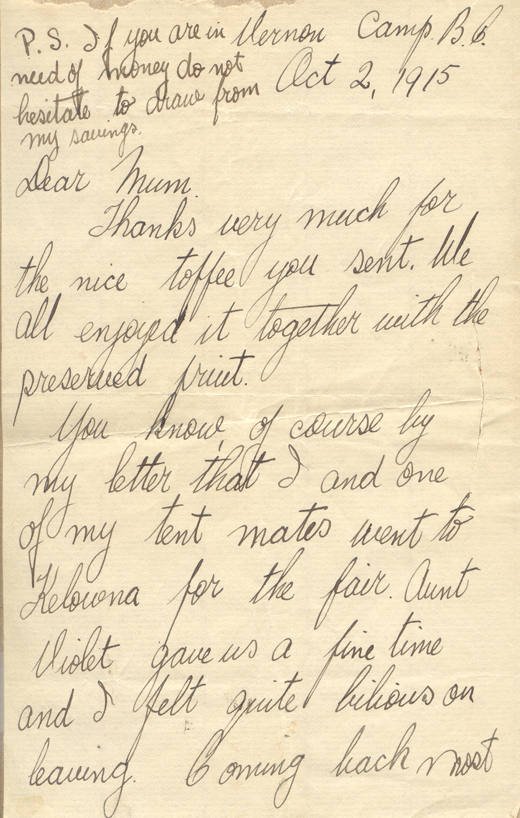 P.S. If you are in
need of money do not
hesitate to draw from
my savings.
Vernon Camp. B.C.
Oct 2, 1915
Dear Mum.
Thanks very much for
the nice toffee you sent. We
all enjoyed it together with the
preserved fruit.
You know, of course by
my letter that I and one
of my tent mates went to
Kelowna for the fair. Aunt
Violet gave us a fine time
and I felt quite bilious on
leaving. Coming back most